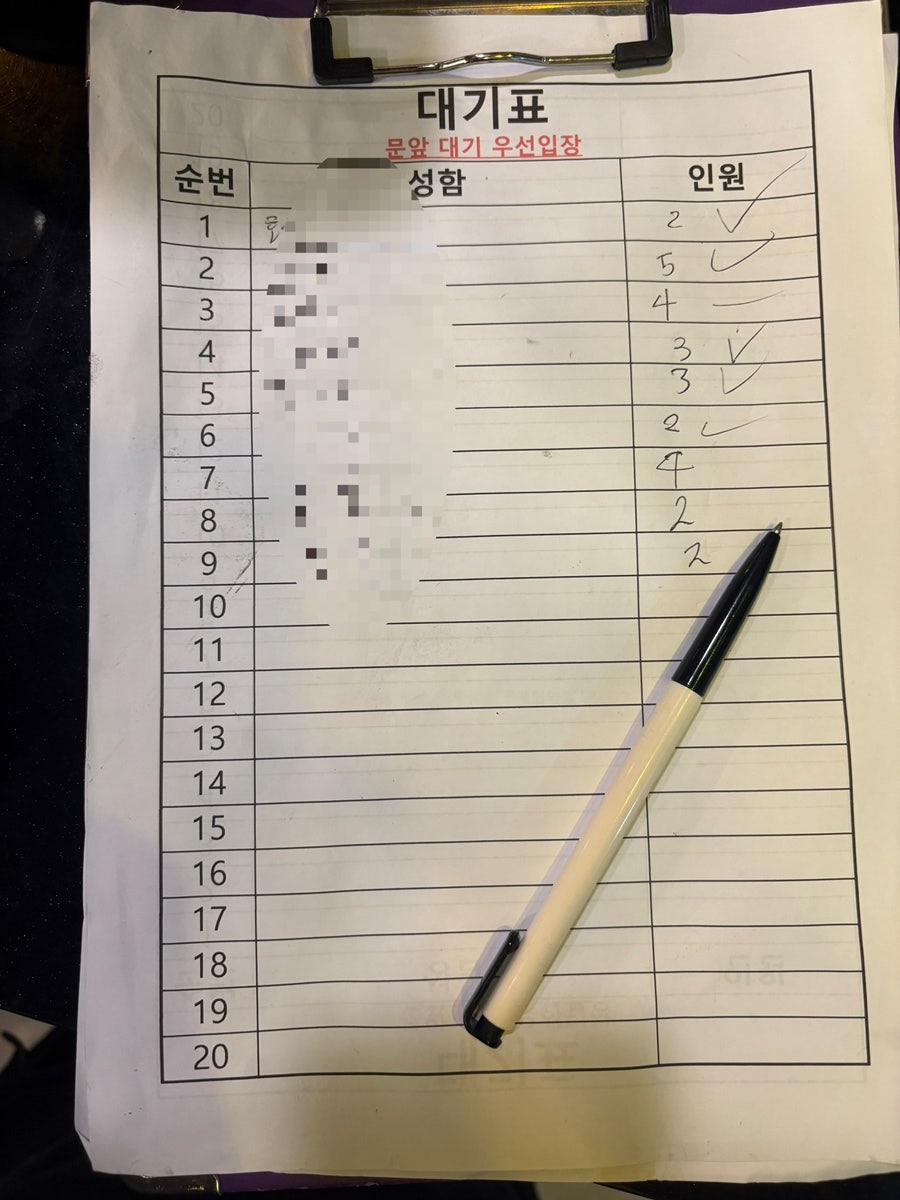 대기표
문앞 대기 우선입장
순번 성함 인원
1 2 ✓
2 5 ✓
3 4 —
4 3 ✓
5 3 ✓
6 2 ✓
7 4
8 2
9 2
10
11
12
13
14
15
16
17
18
19
20